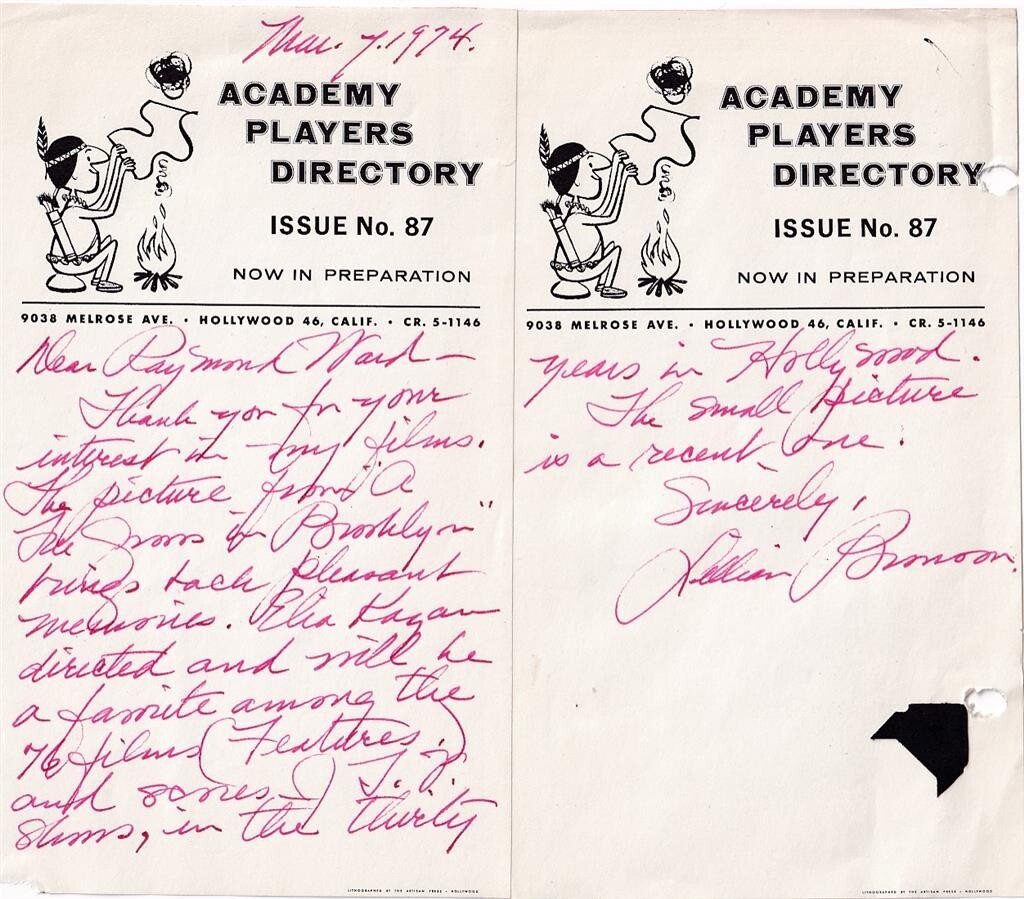 Mar. 7. 1974.
ACADEMY
PLAYERS
DIRECTORY
ISSUE No. 87
NOW IN PREPARATION
9038 MELROSE AVE. • HOLLYWOOD 46, CALIF. • CR. 5-1146
Dear Raymond Ward —
Thank you for your
interest in my films.
The picture from "A
Tree Grows in Brooklyn"
brings back pleasant
memories. Elia Kazan
directed and will be
a favorite among the
76 films (Features.)
and scores T.V.
shows, in the thirty
LITHOGRAPHED BY THE ARTISAN PRESS • HOLLYWOOD
ACADEMY
PLAYERS
DIRECTORY
ISSUE No. 87
NOW IN PREPARATION
9038 MELROSE AVE. • HOLLYWOOD 46, CALIF. • CR. 5-1146
years in Hollywood.
The small picture
is a recent one.
Sincerely,
Lillian Bronson.
LITHOGRAPHED BY THE ARTISAN PRESS • HOLLYWOOD